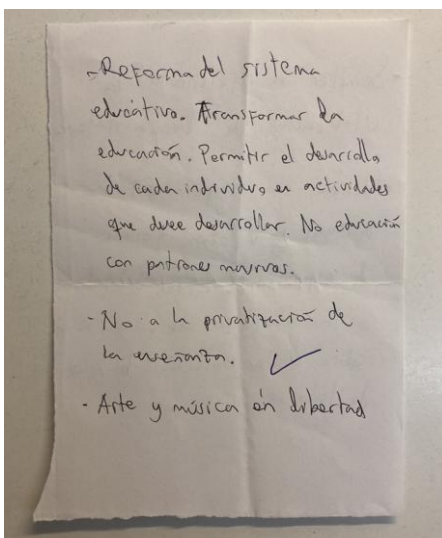 - Reforma del sistema
educativo. Transformar la
educación. Permitir el desarrollo
de cada individuo en actividades
que desee desarrollar. No educación
con patrones masivos.
- No a la privatización de
la enseñanza.
- Arte y música en libertad